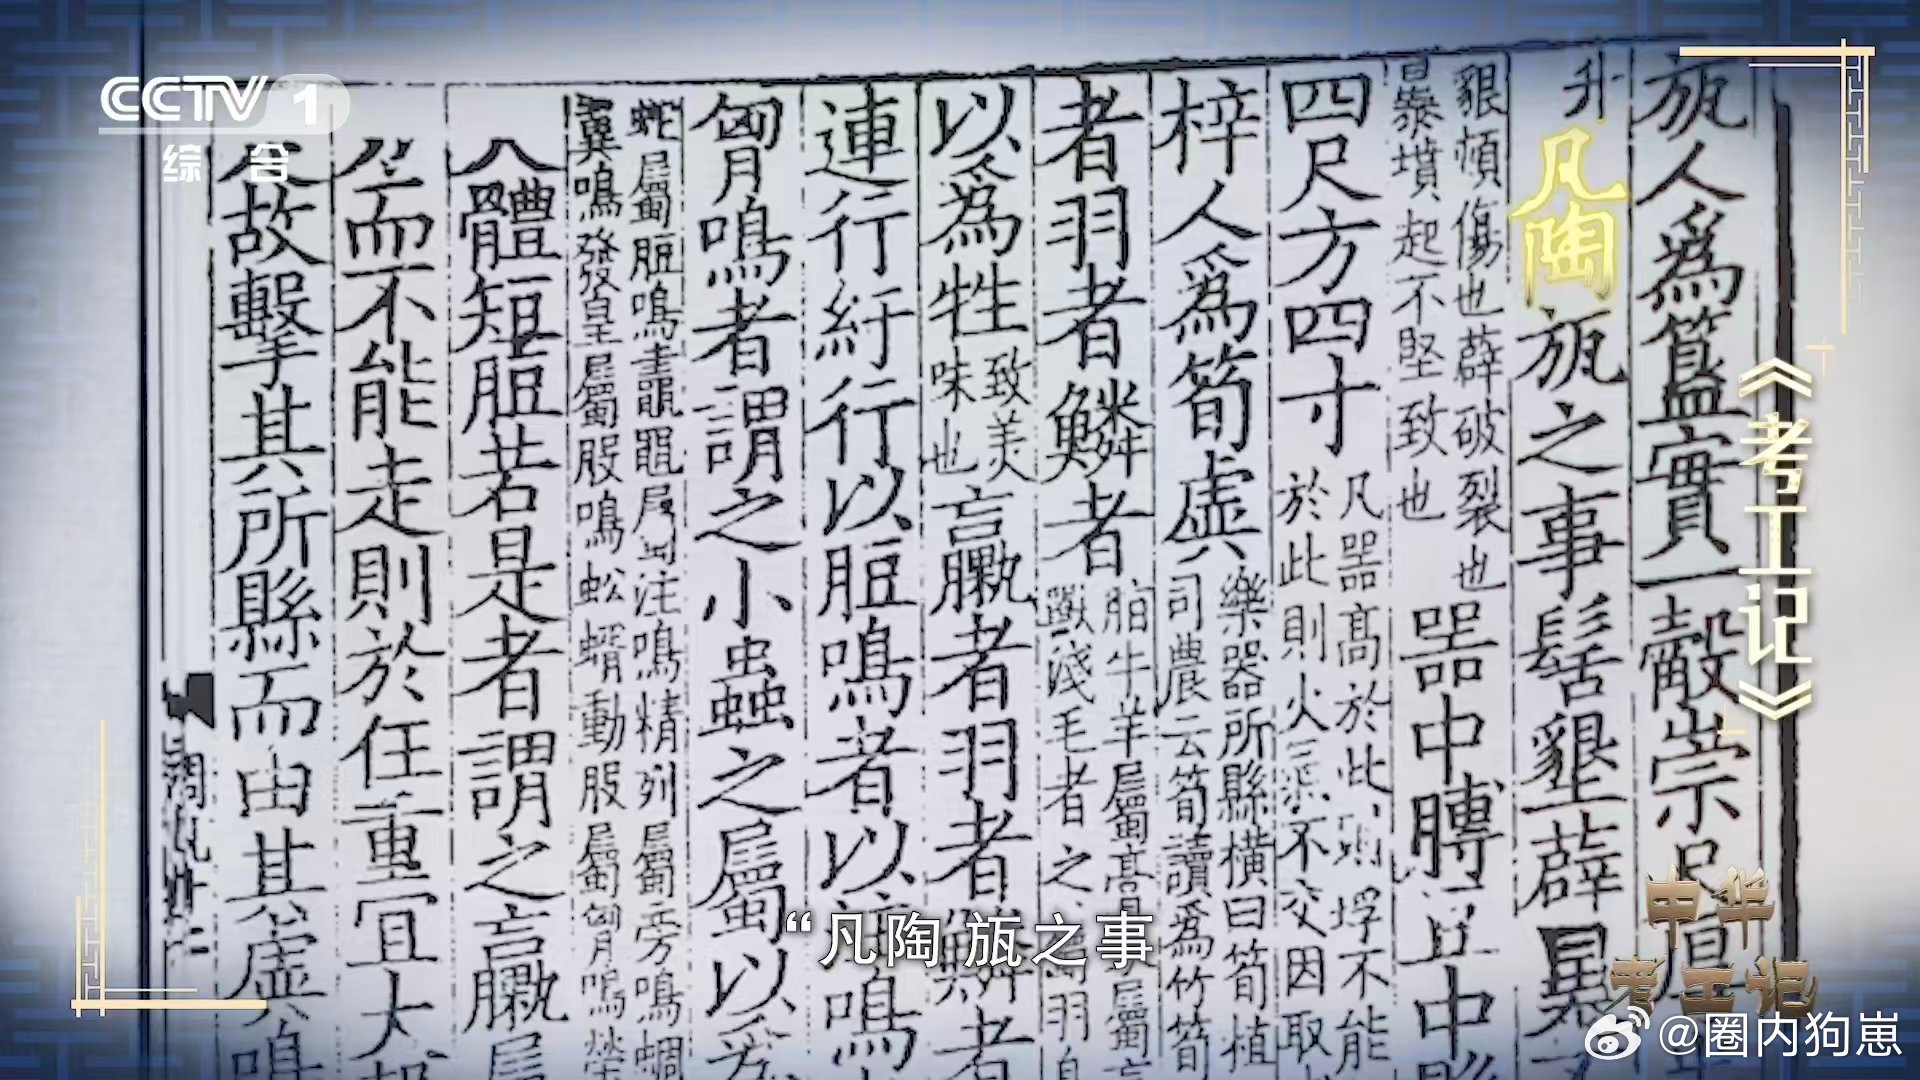 CCTV 1
综合
《考工记》
瓬人爲簋實一觳崇尺
升凡陶瓬之事髺墾薜暴
墾頓傷也薜破裂也
暴墳起不堅致也
器中膊豆中
四尺方四寸
凡器高於此則垺不能
於此則火不交因取
梓人爲筍虡
樂器所縣橫曰筍植
司農云筍讀爲竹筍
者羽者鱗者
脂牛羊屬膏屬
淺毛者之羽
以爲牲
致美
味也
臝者羽者鱗者
連行紆行以脰鳴者以鳴
匈鳴者謂之小蟲之屬以爲
蛇屬脰鳴鼃黽屬注鳴精列屬旁鳴蜩
翼鳴發皇屬股鳴蚣蝑動股屬匈鳴榮
大體短脰若是者謂之臝屬
而不能走則於任重宜大
故擊其所縣而由其虡鳴
“凡陶 瓬之事
中华
考工记
@圈内狗崽